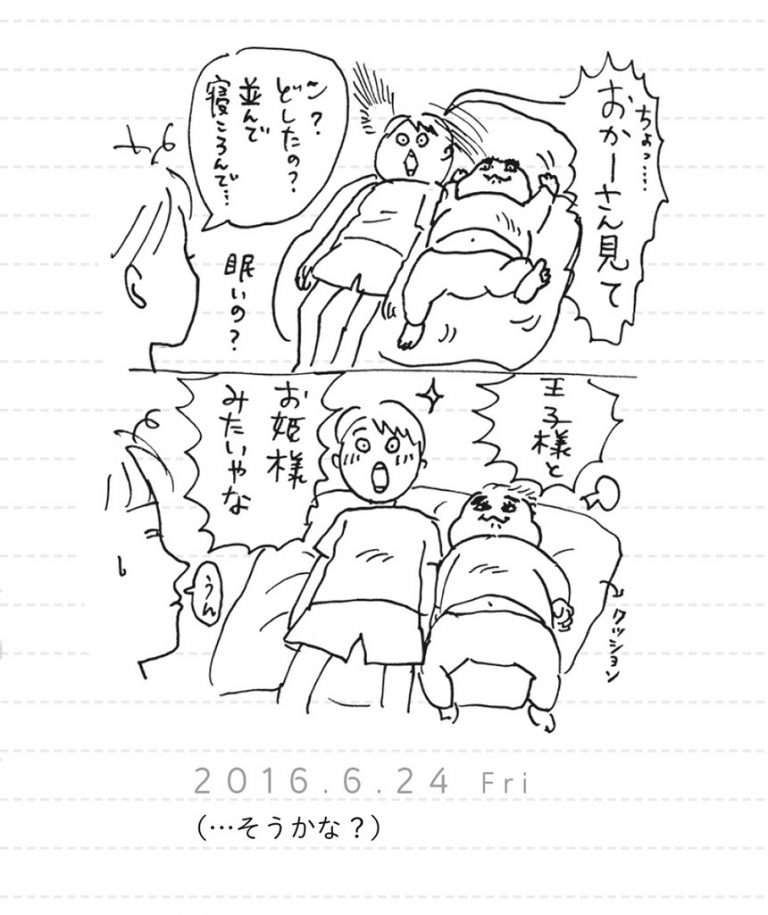 ちょっ……
おかーさん見て
ン？
どしたの？
並んで
寝ころんで…
眠いの？
王子様と
お姫様
みたいやな
うん
クッション
2016.6.24 Fri
(…そうかな？)